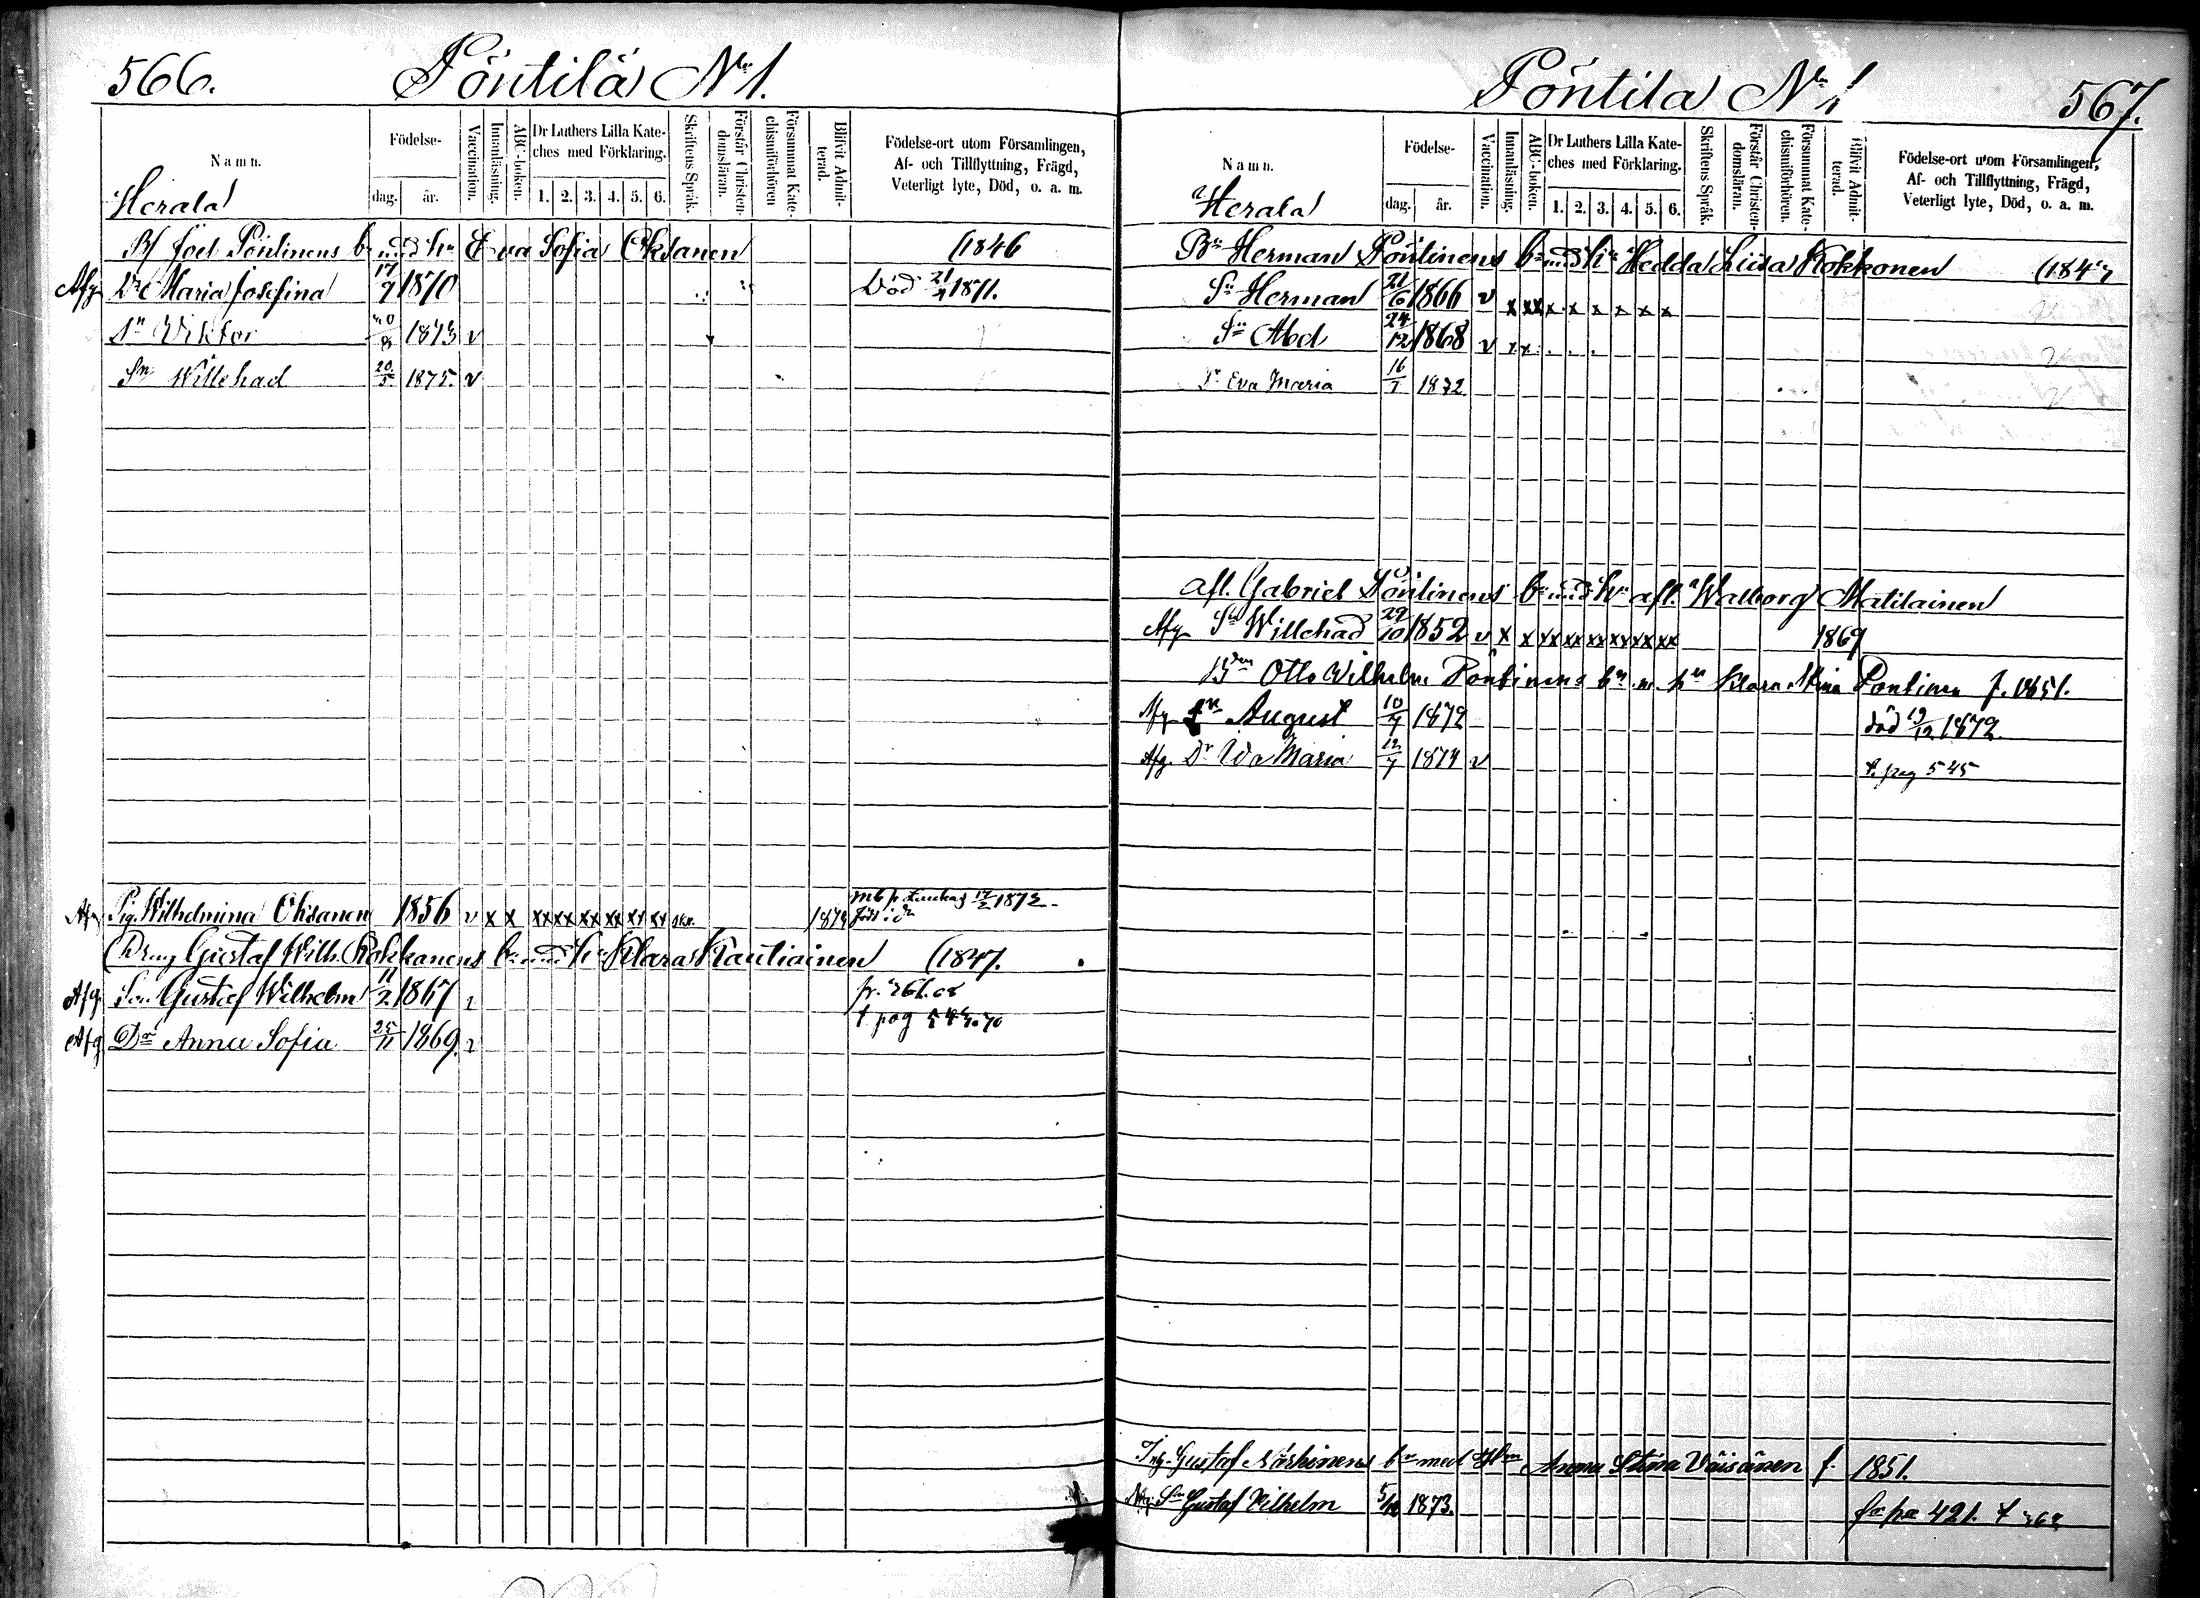 566.
Pöntilä No 1.
Namn.
Födelse-
dag.
år.
Vaccination.
Innanläsning.
ABC-boken.
Dr Luthers Lilla Kate-
ches med Förklaring.
1. 2. 3. 4. 5. 6.
Skriftens Språk.
Förstår Christen-
domsläran.
Försummat Kate-
chismiförhören
Blifvit Admit-
terad.
Födelse-ort utom Församlingen,
Af- och Tillflyttning, Frägd,
Veterligt lyte, Död, o. a. m.
Herala
Joel Pöntinens bn med hu Eva Sofia Oksanen (1846
Afg Dr Maria Josefina 17/9 1870 Död 1871.
Sn Viktor 1873 v
Sn Willehad 20/5 1875. v
Afg Pig. Wilhelmina Oksanen 1856 v x x xx xx xx xx xx xx skr. 1873 17/2 1872
Gustaf Wilh. Kokkonens bn med hu Klara Kautiainen (1847.
Afg. Son Gustaf Wilhelm 11/2 1867 v
t pag
Afg Dr Anna Sofia 25/11 1869. v
Pöntilä No 1
567.
Namn.
Födelse-
dag.
år.
Vaccination.
Innanläsning.
ABC-boken.
Dr Luthers Lilla Kate-
ches med Förklaring.
1. 2. 3. 4. 5. 6.
Skriftens Språk.
Förstår Christen-
domsläran.
Försummat Kate-
chismiförhören.
Blifvit Admit-
terad.
Födelse-ort utom Församlingen,
Af- och Tillflyttning, Frägd,
Veterligt lyte, Död, o. a. m.
Herala
Bn Herman Pöntinens bn med hu Hedda Liisa Kokkonen
Sn Herman 21/6 1866 v x xx x x x x x x
Sn Abel 24/12 1868 v
Dr Eva Maria 16/7 1872
afl. Gabriel Pöntinens bn med hu afl. Walborg Matilainen
Afg Sn Willehad 29/10 1852 v x x xx xx xx xx xx xx 1869
Otto Wilhelm Pöntinens bn m hu Klara Stina Pöntinen f. 1851.
Afg Sn August 10/7 1872 död 19/12 1872.
Afg. Dr Ida Maria 12/7 1874 v t. pag 545
Gustaf Närhinens bn med Anna Stina Väisänen f. 1851.
Sn Gustaf Vilhelm 1873. fr pa 421. t